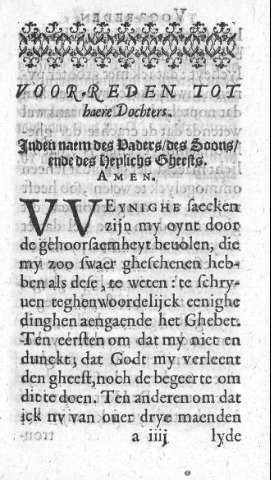 VOOR-REDEN TOT
haere Dochters.
Inden naem des Vaders/des Soons/
ende des Heylichs Gheests.
AMEN.
VVEYNIGHE saecken
zijn my oynt door
de gehoorsaemheyt beuolen, die
my zoo swaer gheschenen heb-
ben als dese, te weten: te schry-
uen teghenwoordelijck eenighe
dinghen aengaende het Ghebet.
Ten eersten om dat my niet en
dunckt, dat Godt my verleent
den gheest, noch de begeerte om
dit te doen. Ten anderen om dat
ick nv van ouer drye maenden
a iiij lyde